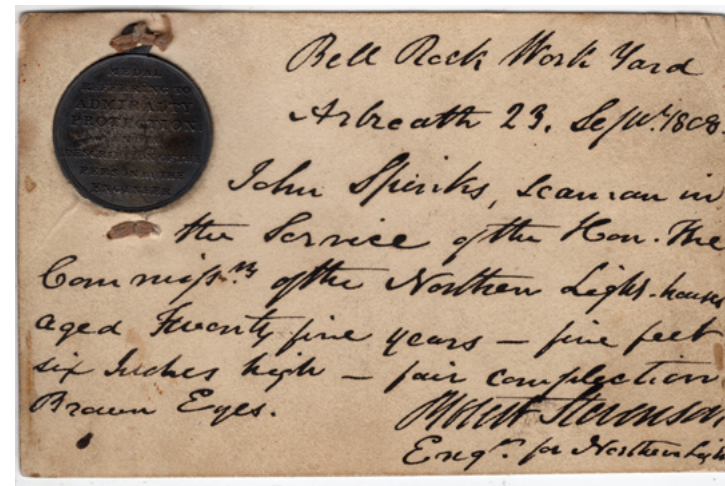 MEDAL
REFERRING TO
ADMIRALTY
PROTECTION.
AND
DESCRIPTION OF THE
PERSON BY THE
ENGINEER
Bell Rock Work Yard
Arbroath 23. Septr. 1808.
John Spinks, seaman in
the Service of the Hon. The
Commissrs of the Northern Light-houses
aged Twenty five years — five feet
six Inches high — fair complection
Brown Eyes.
Robert Stevenson
Engr. for Northern Lights